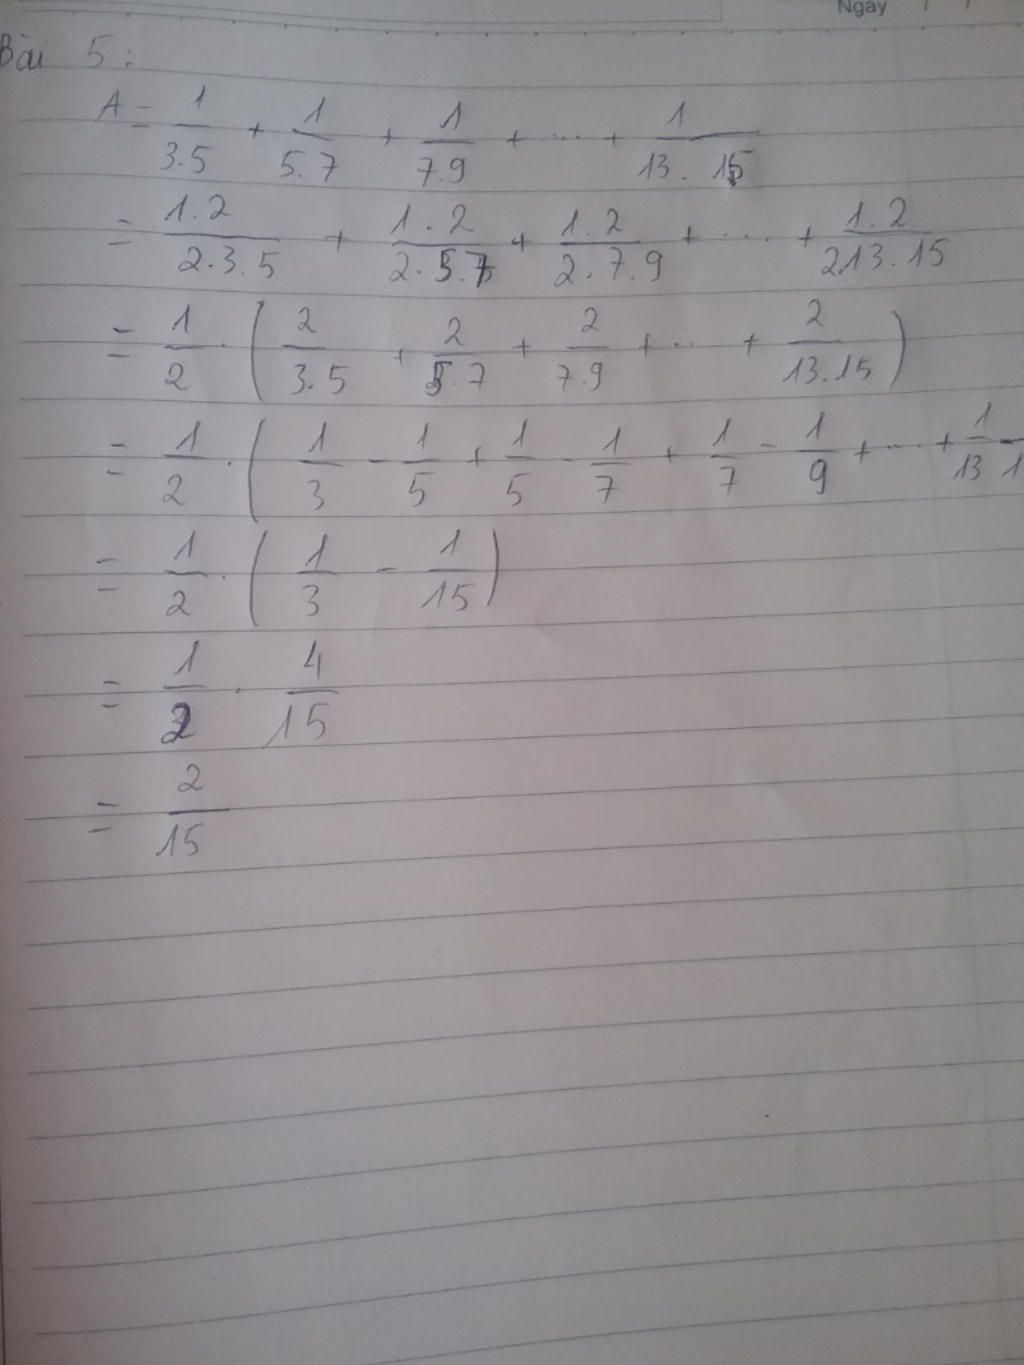 Ngày / /
Bài 5:
A = 1/3.5 + 1/5.7 + 1/7.9 + ... + 1/13.15
= 1.2/2.3.5 + 1.2/2.5.7 + 1.2/2.7.9 + .... + 1.2/2.13.15
= 1/2 . ( 2/3.5 + 2/5.7 + 2/7.9 + ... + 2/13.15 )
= 1/2 . ( 1/3 - 1/5 + 1/5 - 1/7 + 1/7 - 1/9 + ... + 1/13 -
= 1/2 . ( 1/3 - 1/15 )
= 1/2 . 4/15
= 2/15